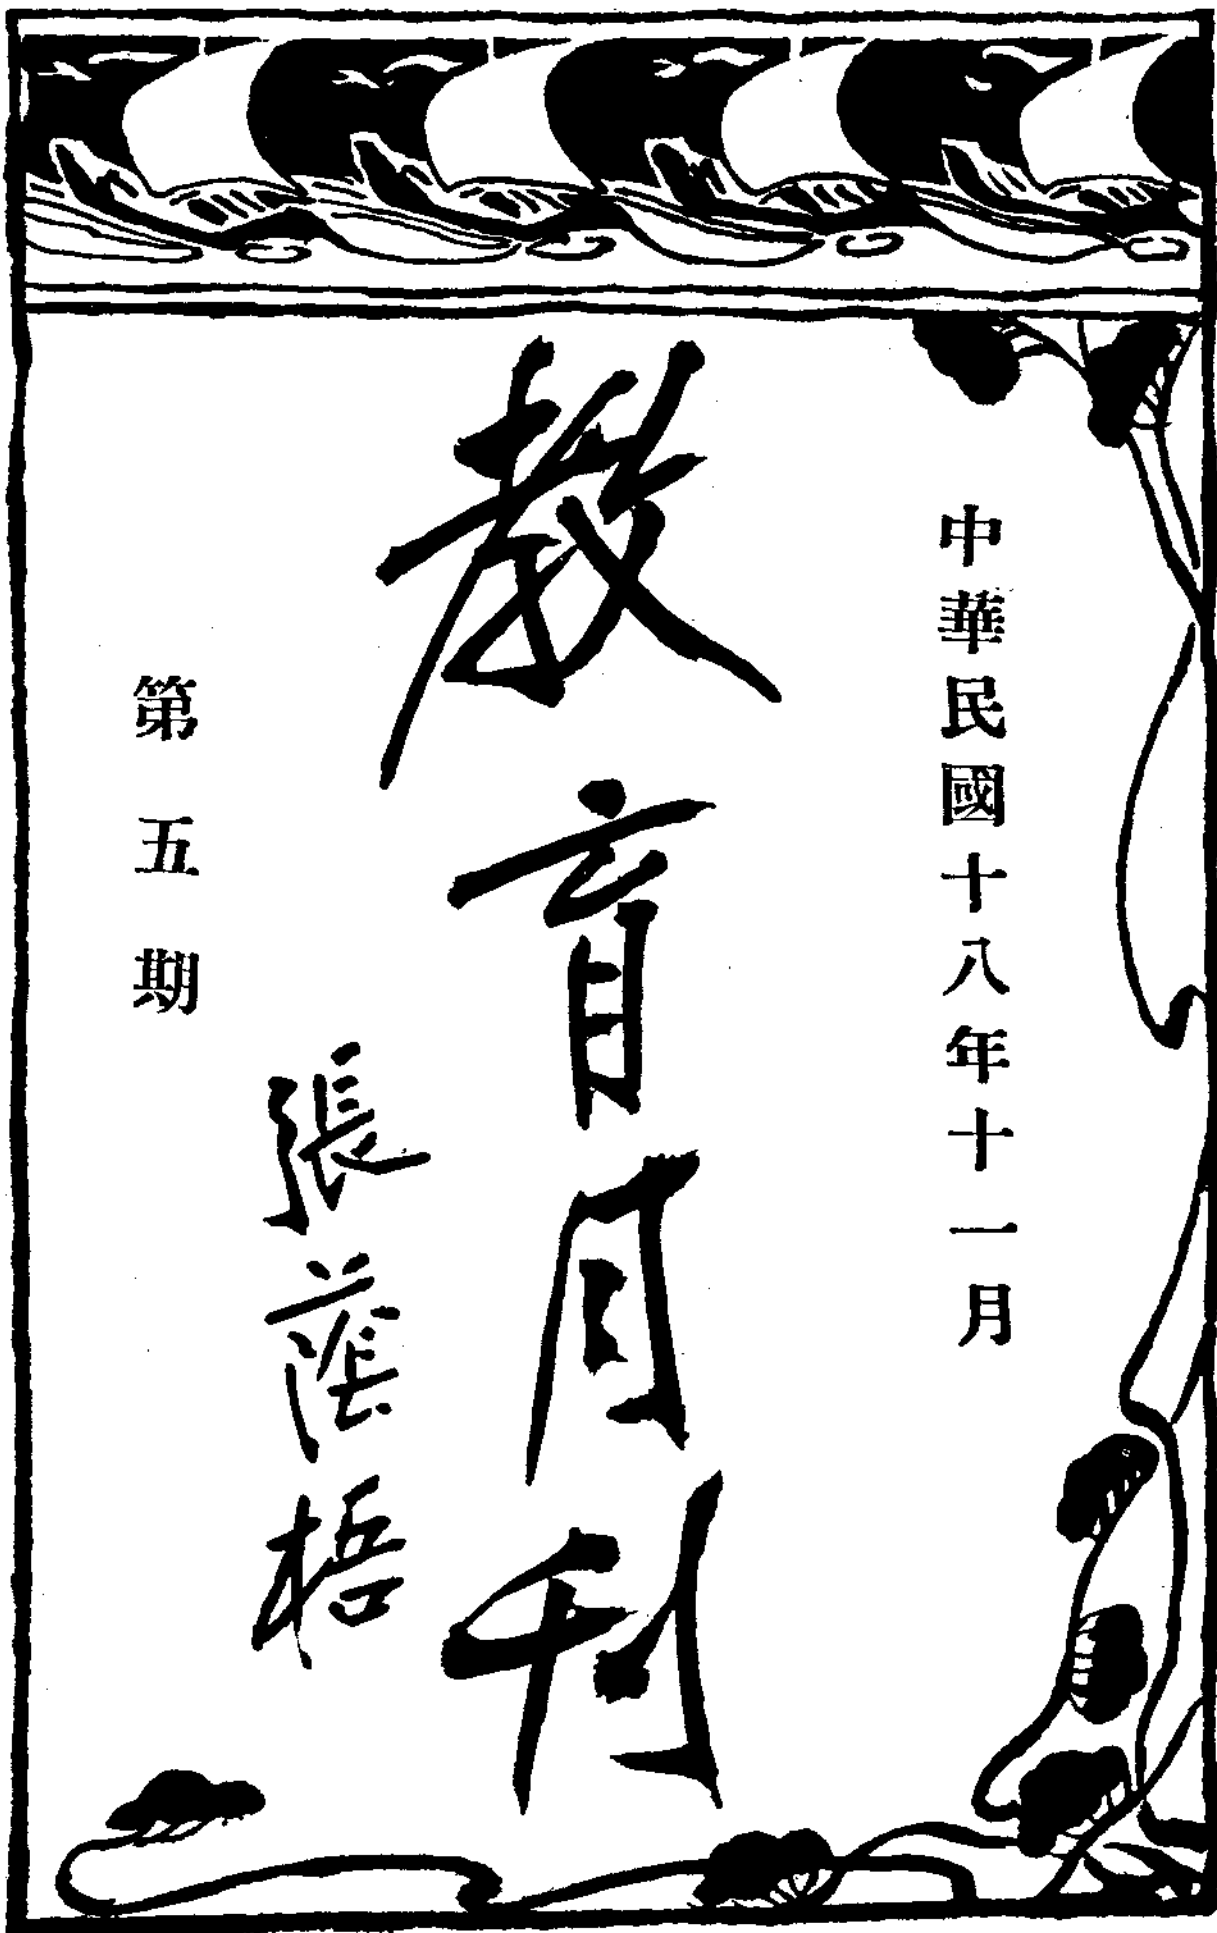 中華民國十八年十一月
教育月刊
張蔭梧
第五期